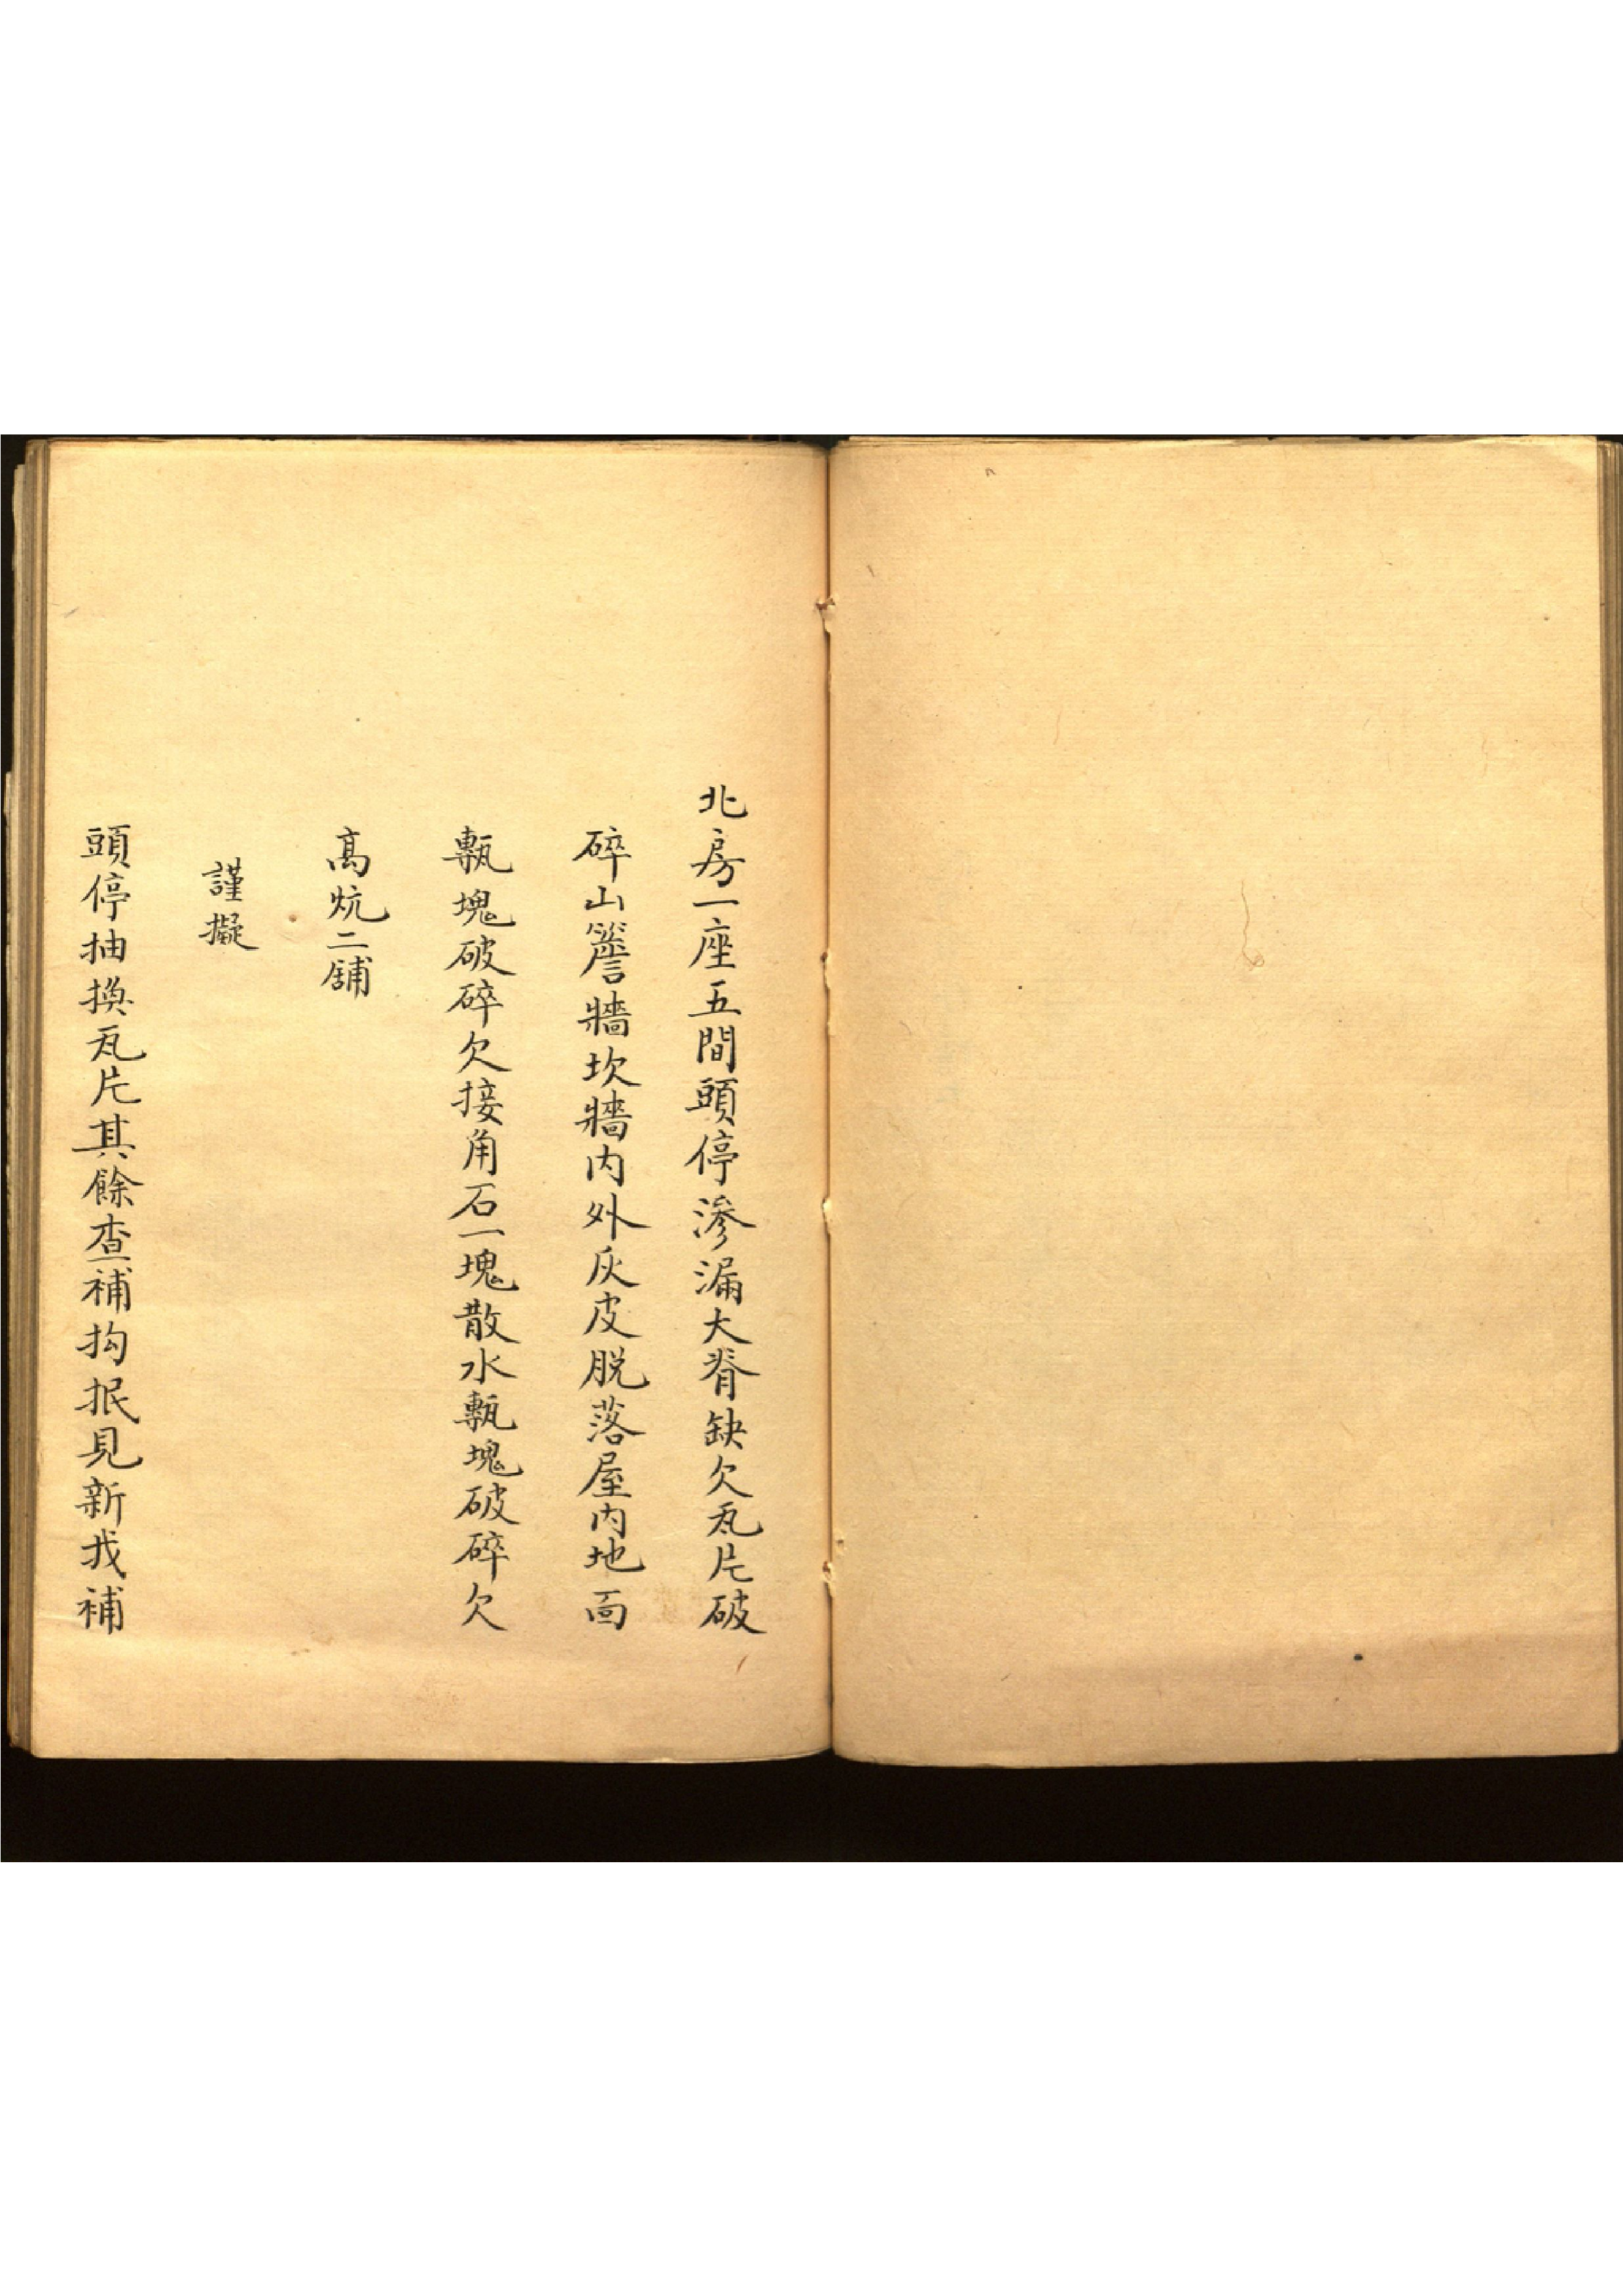 北房一座五間頭停滲漏大脊缺欠瓦片破
碎山簷牆坎牆內外灰皮脫落屋內地面
甎塊破碎欠接角石一塊散水甎塊破碎欠
高炕二舖
謹擬
頭停抽換瓦片其餘查補抅抿見新找補